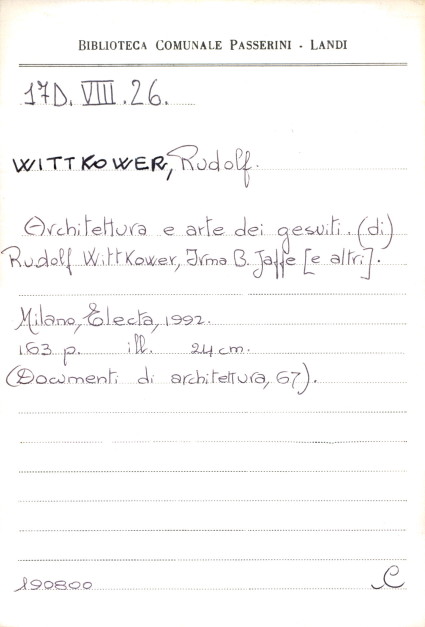 BIBLIOTECA COMUNALE PASSERINI - LANDI
17D. VIII. 26.
WITTKOWER, Rudolf.
Architettura e arte dei gesuiti. (di)
Rudolf Wittkower, Irma B. Jaffe [e altri].
Milano, Electa, 1992.
163 p. ill. 24 cm.
(Documenti di architettura, 67).
190800 C